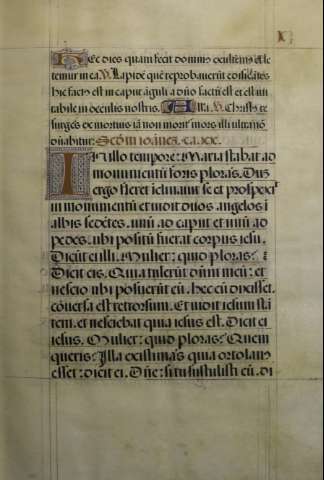 Hec dies quam fecit dominus exultemus et le
temur in ea. V. Lapidē quē reprobaverūt edificātes
hic factus est in caput āguli a dño factū est et est mi
rabile in oculis nostris. Alla. V. Christus re
surgēs ex mortuis iā non morit mors illi ultra nō
dūabitur: Scdm ioanes. ca. xx.
In illo tempore: Maria stabat ad
monumentū foris plorās. Dus
ergo fleret iclinavit se et prospexit
in monumentū et vidit duos angelos i
albis sedētes. unū ad caput et unū ad
pedes. ubi positū fuerat corpus iesu.
Dicūt ei illi. Mulier: quid ploras?
Dicit eis. Quia tulerūt dñm meū: et
nescio ubi posuerūt eū. hec cū dixisset.
cōversa est retrorsum. Et vidit iesum stā
tem. et nesciebat quia iesus est. Dicit ei
iesus. Mulier: quid ploras? Quem
queris? Illa existimās quia ortolan
esset: dicit ei. Dñe: si tu sustulisti eū. di